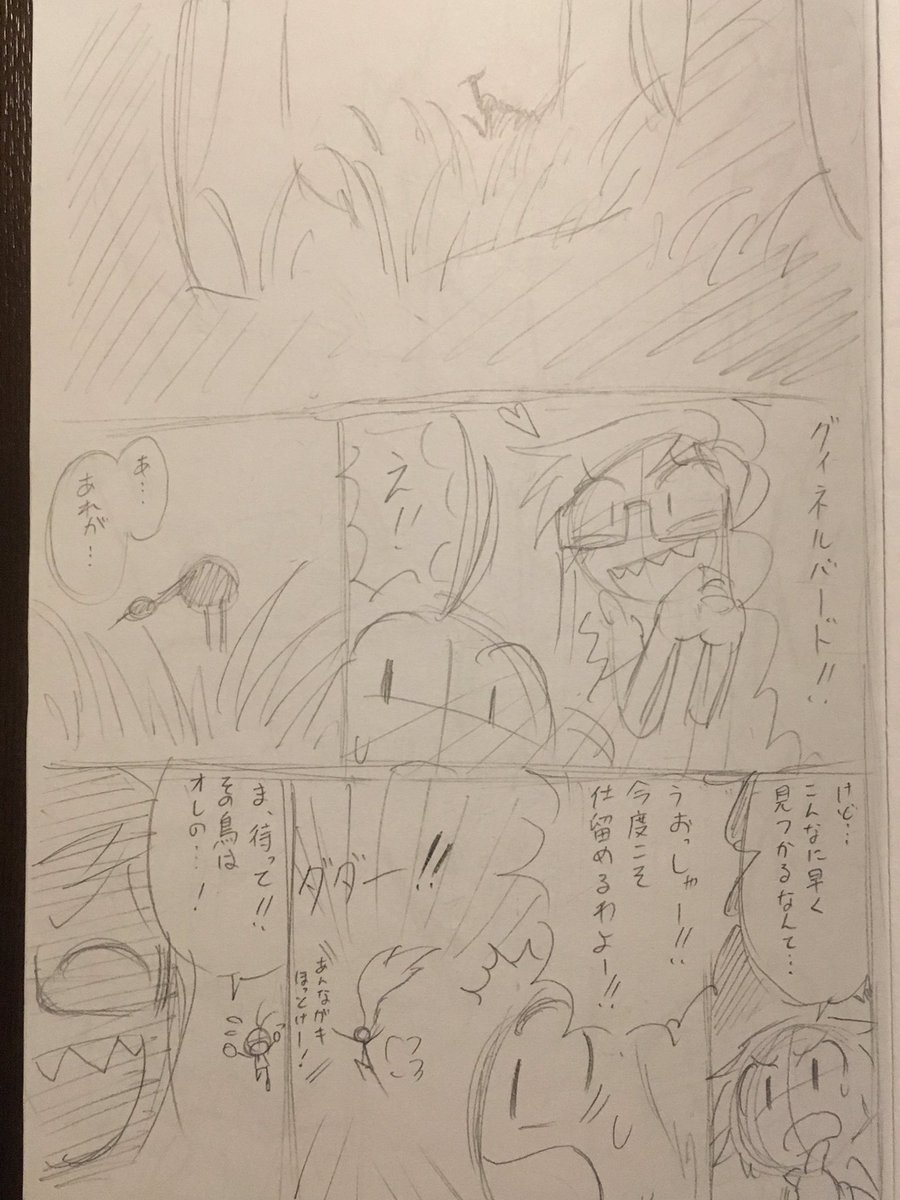 グィネルバード!!
え!!
あ…
あれが…
けど…
こんなに早く
見つかるなんて…
うおっしゃー!!
今度こそ
仕留めるわよー!!
ダダー!!
あんながき
ほっとけー!
ま、待って!!
その鳥は
オレの…!